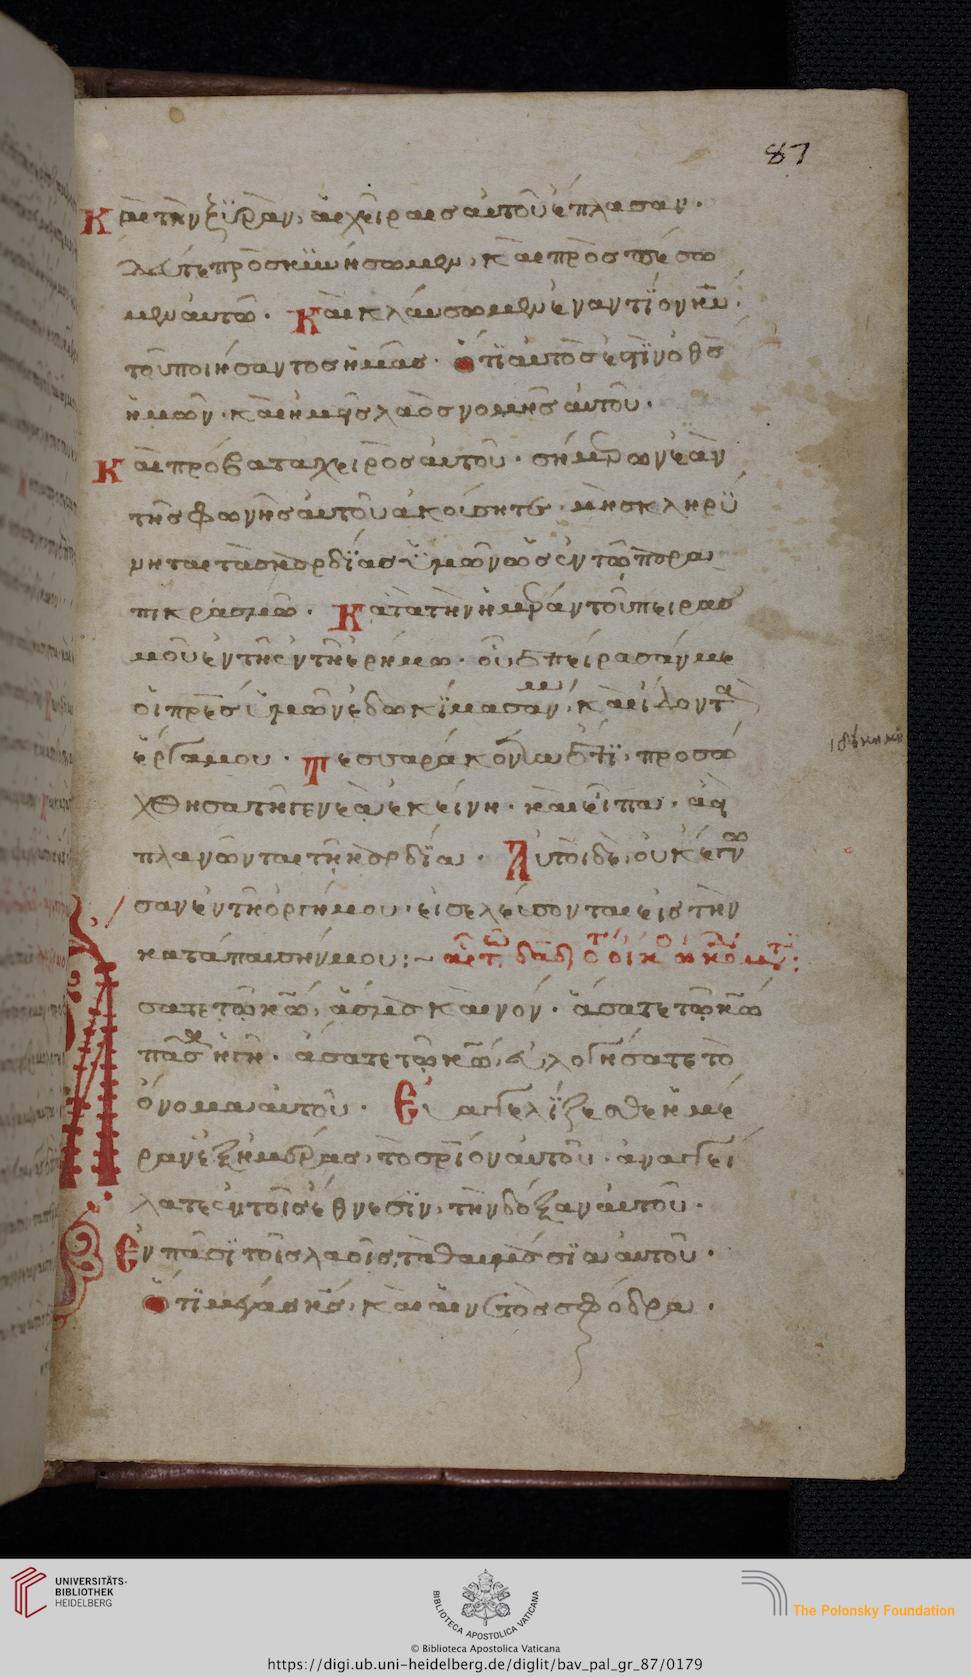 87
Καὶ τὴν ξηρὰν, αἱ χεῖρες αὐτοῦ ἔπλασαν.
δεῦτε προσκυνήσωμεν, καὶ προσπέσω
μεν αὐτῶ. Καὶ κλαύσωμεν ἐναντίον κυ
τοῦ ποιήσαντος ἡμᾶς. ὅτι αὐτὸς ἐστὶν ὁ θς
ἡμῶν. καὶ ἡμεῖς λαὸς νομῆς αὐτοῦ.
Καὶ πρόβατα χειρὸς αὐτοῦ. σήμερον ἐὰν
τῆς φωνῆς αὐτοῦ ἀκούσητε. μὴ σκληρύ
νηται τὰς καρδίας ὑμῶν ὡς ἐν τῶ παρα
πικρασμῶ. Κατὰ τὴν ἡμέραν τοῦ πειρασ
μοῦ ἐν τῆ ἐν τῆ ἐρήμω. οὗ ἐπείρασάν με
οἱ πρες ὑμῶν ἐδωκίμασαν, καὶ ἴδοντα
ἔργα μου. Τεσσαράκοντα ἔτι, προσώ
χθησα τῆ γενεᾶ ἐκείνη. καὶ εἶπα. ἀεὶ
πλανῶνται τῆ καρδία. Αὐτοὶ δὲ οὐκ ἔγνω
σαν ἐν τῆ ὀργῆ μου. εἰσελεύσονται εἰς τὴν
κατάπαυσίν μου:~
σατε τῶ κω, ἄσμα καινόν. ἄσατε τῶ κω
πᾶσα ἡ γῆ. ἄσατε τῶ κω, εὐλογήσατε τὸ
ὄνομα αὐτοῦ. Εὐαγγελίζεσθε ἡμέ
ραν ἐξ ἡμέρας, τὸ σριον αὐτοῦ. ἀναγγεί
λατε ἐν τοῖς ἔθνεσιν, τὴν δόξαν αὐτοῦ.
Ἐν πᾶσι τοῖς λαοῖς, τὰ θαυμάσια αὐτοῦ.
Ὅτι μέγας κς, καὶ αἰνετὸς σφόδρα.
UNIVERSITÄTS-
BIBLIOTHEK
HEIDELBERG
BIBLIOTECA APOSTOLICA VATICANA
The Polonsky Foundation
© Biblioteca Apostolica Vaticana
https://digi.ub.uni-heidelberg.de/diglit/bav_pal_gr_87/0179